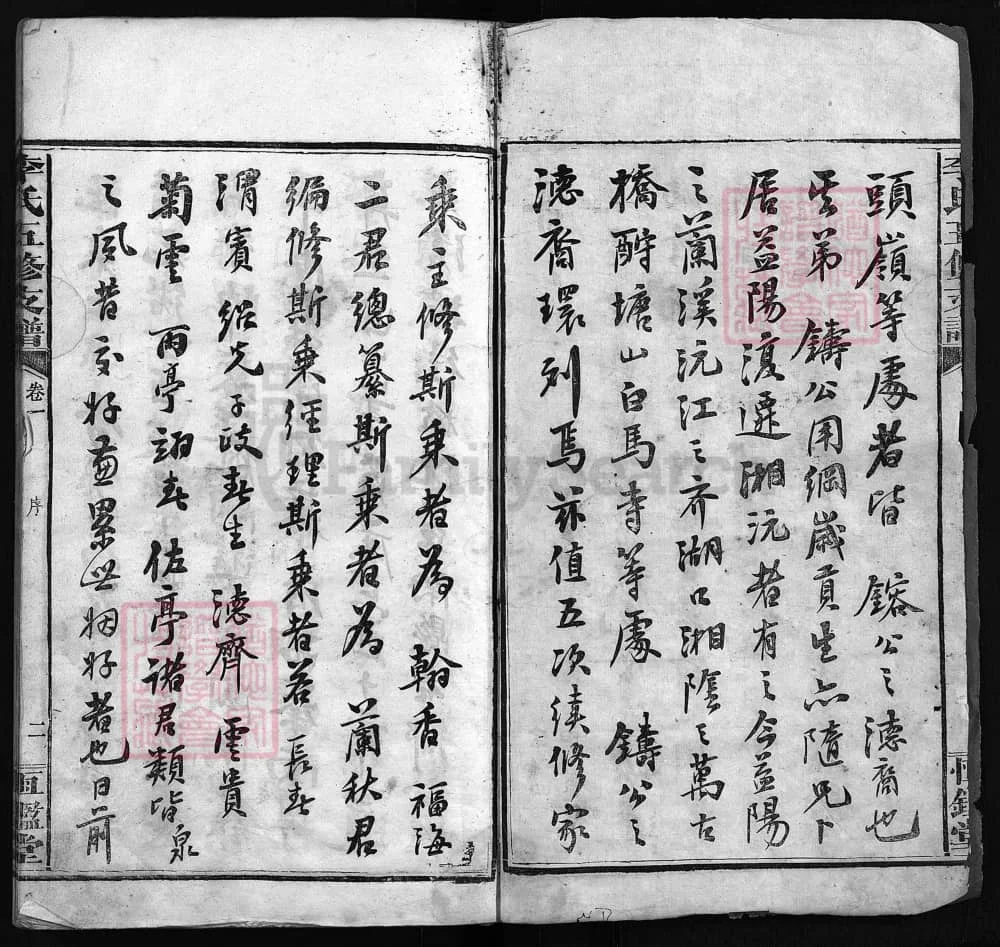 頭嶺等處者皆 鎔公之德裔也
其弟 鑄公用綱歲貢生亦隨兄卜
居益陽復遷湘沅者有之今益陽
之蘭溪沅江之齐湖口湘陰之萬古
橋酹塘山白馬寺等處 鑄公之
德裔環列焉茲值五次續修家
乘主修斯乘者為 翰香 福海
二君總纂斯乘者為 蘭秋君
編修斯乘經理斯乘者若 長春
渭賓 紹先 子政 春生 德齊 雲貴
菊雲 雨亭 翊春 佐亭諸君類皆泉
之風昔交好兼累世姻好者也日前
李氏五修支譜
卷一
序
二
FamilySearch